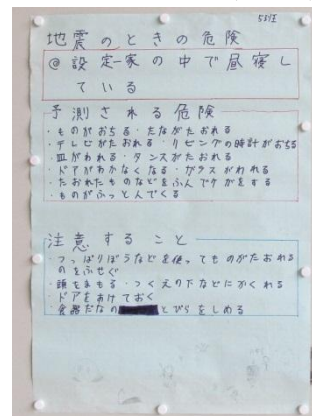 5班
地震のときの危険
@設定－家の中で昼寝し
ている
予測される危険
・ものがおちる・たながたおれる
・テレビがたおれる・リビングの時計がおちる
・皿がわれる・タンスがたおれる
・ドアがあかなくなる・ガラスがわれる
・たおれたものなどをふんでケガをする
・ものがふっとんでくる
注意すること
・つっぱりぼうなどを使ってものがたおれる
のをふせぐ
・頭をまもる・つくえの下などにかくれる
・ドアをあけておく
・食器だなの とびらをしめる